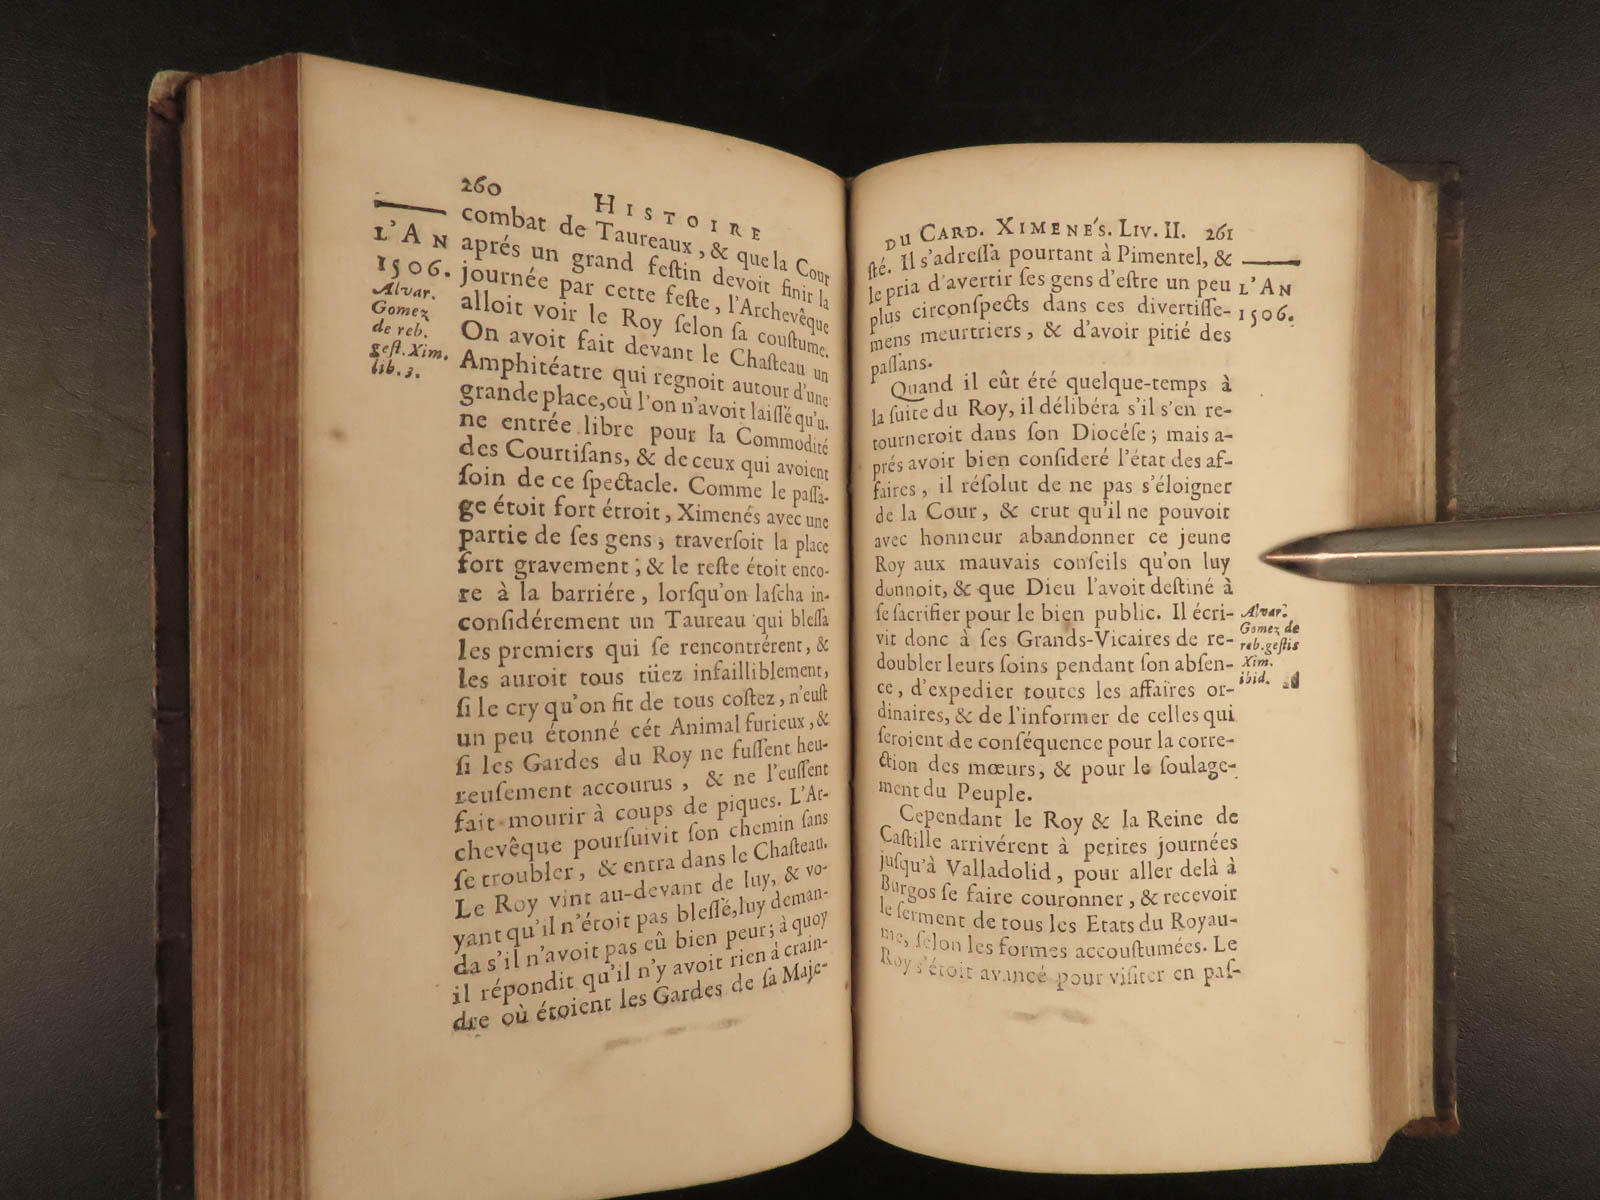 260 HISTOIRE
L'AN
1506.
Alvar.
Gomez
de reb.
gest. Xim.
lib. 3.
combat de Taureaux, & que la Cour
aprés un grand feſtin devoit finir la
journée par cette feſte, l'Archevêque
alloit voir le Roy ſelon ſa couſtume.
On avoit fait devant le Chaſteau un
Amphitéatre qui regnoit autour d'une
grande place, où l'on n'avoit laiſſé qu'u-
ne entrée libre pour la Commodité
des Courtiſans, & de ceux qui avoient
ſoin de ce ſpectacle. Comme le paſſa-
ge étoit fort étroit, Ximenés avec une
partie de ſes gens, traverſoit la place
fort gravement; & le reſte étoit enco-
re à la barriére, lorſqu'on laſcha in-
conſidérement un Taureau qui bleſſa
les premiers qui ſe rencontrérent, &
les auroit tous tüez infailliblement,
ſi le cry qu'on fit de tous coſtez, n'euſt
un peu étonné cét Animal furieux, &
ſi les Gardes du Roy ne fuſſent heu-
reuſement accourus, & ne l'euſſent
fait mourir à coups de piques. L'Ar-
chevêque pourſuivit ſon chemin ſans
ſe troubler, & entra dans le Chaſteau.
Le Roy vint au-devant de luy, & vo-
yant qu'il n'étoit pas bleſſé, luy deman-
da s'il n'avoit pas eû bien peur; à quoy
il répondit qu'il n'y avoit rien à crain-
dre où étoient les Gardes de ſa Maje-
DU CARD. XIMENÉS. LIV. II. 261
L'AN
1506.
ſté. Il s'adreſſa pourtant à Pimentel, &
le pria d'avertir ſes gens d'eſtre un peu
plus circonſpects dans ces divertiſſe-
mens meurtriers, & d'avoir pitié des
paſſans.
Quand il eût été quelque-temps à
la ſuite du Roy, il délibéra s'il s'en re-
tourneroit dans ſon Diocéſe; mais a-
prés avoir bien conſideré l'état des af-
faires, il réſolut de ne pas s'éloigner
de la Cour, & crut qu'il ne pouvoit
avec honneur abandonner ce jeune
Roy aux mauvais conſeils qu'on luy
donnoit, & que Dieu l'avoit deſtiné à
ſe ſacrifier pour le bien public. Il écri-
vit donc à ſes Grands-Vicaires de re-
doubler leurs ſoins pendant ſon abſen-
ce, d'expedier toutes les affaires or-
dinaires, & de l'informer de celles qui
ſeroient de conſéquence pour la corre-
ction des mœurs, & pour le ſoulage-
ment du Peuple.
Alvar.
Gomez de
reb. geſtis
Xim.
ibid.
Cependant le Roy & la Reine de
Caſtille arrivérent à petites journées
juſqu'à Valladolid, pour aller delà à
Burgos ſe faire couronner, & recevoir
le ſerment de tous les Etats du Royau-
me, ſelon les formes accouſtumées. Le
Roy s'étoit avancé pour viſiter en paſ-